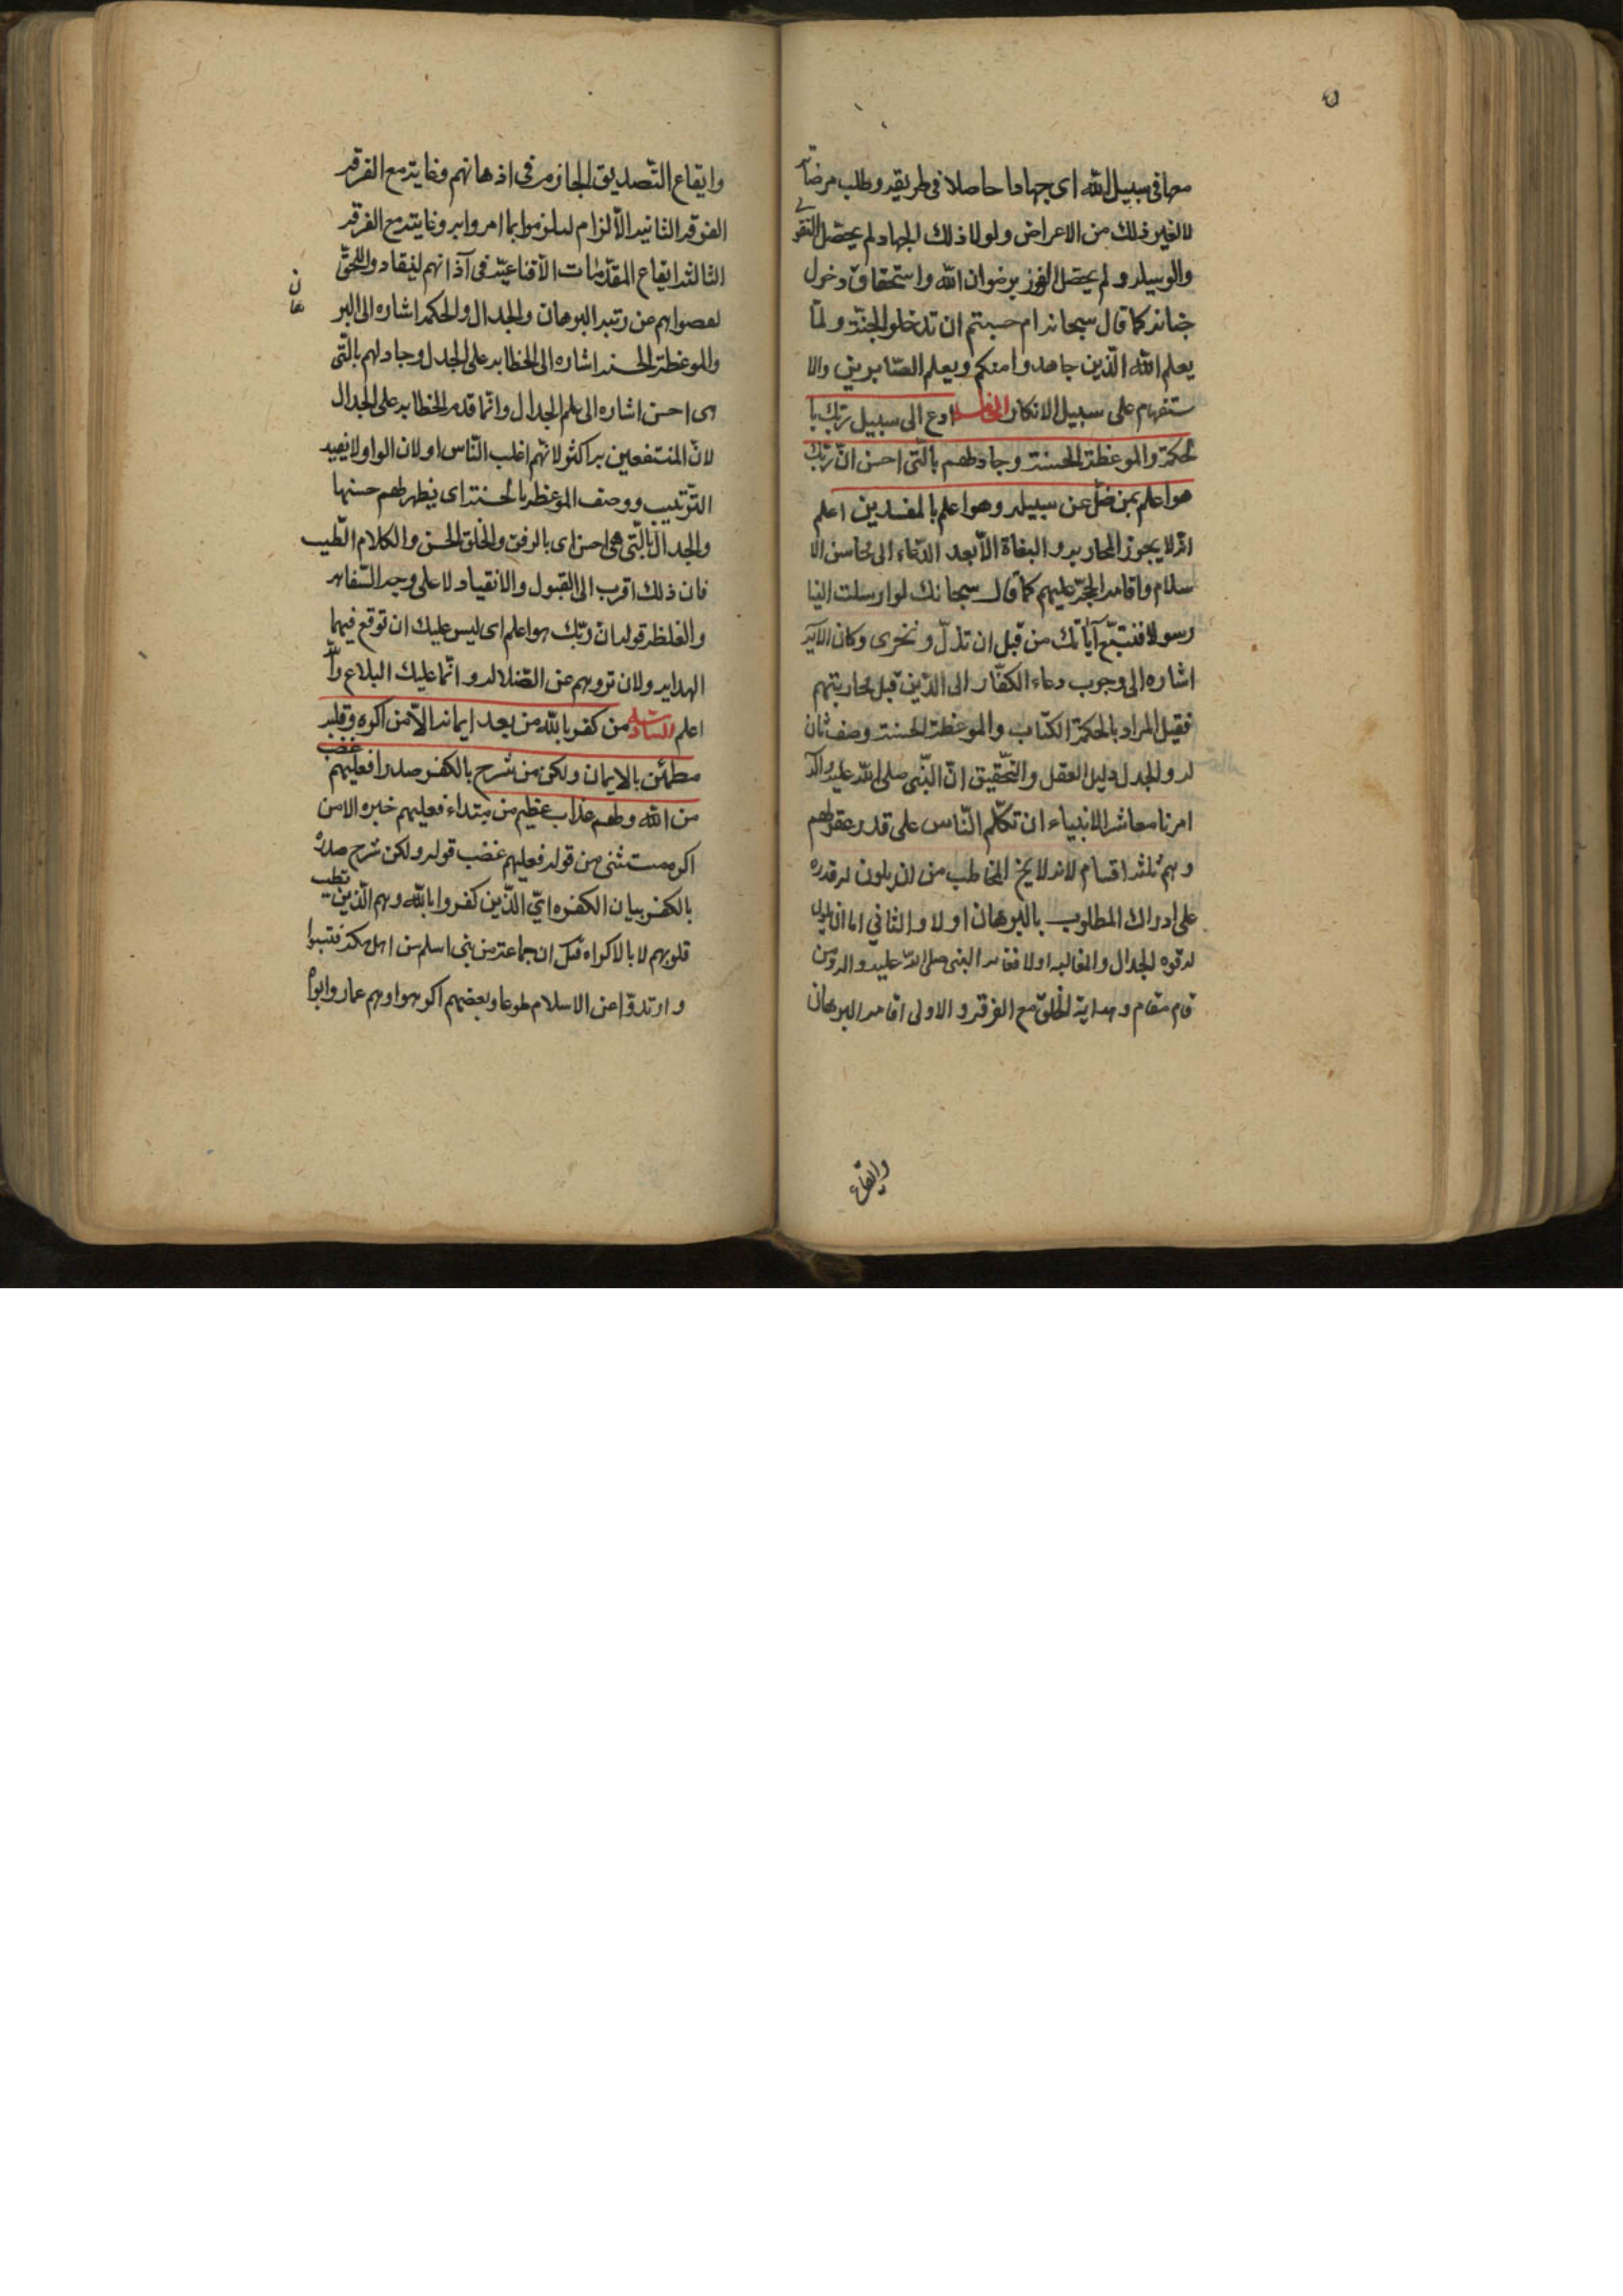 معها في سبيل الله اى جهادا حاصلا في طريقه وطلب مرضاته
لا لغير ذلك من الاعراض ولولا ذلك الجهاد لم يحصل التقوى
والوسيله ولم يحصل الفوز برضوان الله واستحقاق دخول
جنانه كما قال سبحانه ام حسبتم ان تدخلوا الجنة ولمّا
يعلم الله الّذين جاهدوا منكم ويعلم الصّابرين والا
ستفهام على سبيل الانكار الخامسه ادع الى سبيل ربّك با
لحكمة والموعظة الحسنة وجادلهم بالّتى احسن انّ ربّك
هو اعلم بمن ضلّ عن سبيله وهو اعلم بالمفسدين اعلم
انّه لا يجوز المحاربه والبغاة الّا بعد الدّعاء الى محاسن الا
سلام واقامه الحجّة عليهم كما قال سبحانك لو ارسلت الينا
رسولا فنتّبع آياتك من قبل ان نذلّ ونخزى وكان الآية
اشاره الى وجوب دعاء الكفّار الى الدّين قبل محاربتهم
فقيل المراد بالحكمة الكتاب والموعظة الحسنة وصف ثان
له والجدل دليل العقل والتّحقيق انّ النّبى صلى الله عليه واله
امرنا معاشر الانبياء ان نكلّم النّاس على قدر عقولهم
وهم ثلثه اقسام لانه لا يخ المخاطب من ان يكون له قدره
على ادراك المطلوب بالبرهان اولا والثانى اما ان يكون
له قوه الجدال والمغالبه اولا فقامه النبى صلى الله عليه واله ومن
قام مقام وهداية الخلق مع الفرقة الاولى اقامه البرهان
وايقاع
وايقاع التّصديق الجازم فى اذهانهم وغايته مع الفرقه
الفرقه الثانيه الالزام ليلزموا بما امروا به وغايته مع الفرقه
الثالثه ايقاع المقدّمات الاقناعيّة فى آذانهم لينقادوا للحقّ
لقصورهم عن رتبه البرهان والجدال والحكمه اشاره الى البر
هان
والموعظة الحسنه اشاره الى الخطابه على الجدل وجادلهم بالّتى
هى احسن اشاره الى علم الجدال وانّما قدم الخطابه على الجدال
لانّ المنتفعين به اكثر لانّهم اغلب النّاس او لان الواو لا يفيد
التّرتيب ووصف الموعظه بالحسنة اى يظهر لهم حسنها
والجدال بالّتى هى احسن اى بالرفق والخلق الحسن والكلام الطّيب
فان ذلك اقرب الى القبول والانقياد لا على وجه السّفاهه
والغلظه قوله انّ ربّك هو اعلم اى ليس عليك ان توقع فيهما
الهدايه ولان تردهم عن الضّلاله وانّما عليك البلاغ والله
اعلم السّادسه من كفر بالله من بعد ايمانه الّا من اكره وقلبه
مطمئن بالايمان ولكن من شرح بالكفر صدرا فعليهم غضب
من الله ولهم عذاب عظيم من مبتداء فعليهم خبره الا من
اكره مستثنى من قوله فعليهم غضب قوله ولكن شرح صدره
بالكفر بيان الكفره اى الّذين كفروا بالله وهم الّذين تطيب
قلوبهم لا بالاكراه قيل ان جماعة من بنى اسلم من اهل مكة فتنوا
وارتدّوا عن الاسلام طوعا وبعضهم اكرهوا وهم عمار وابواه